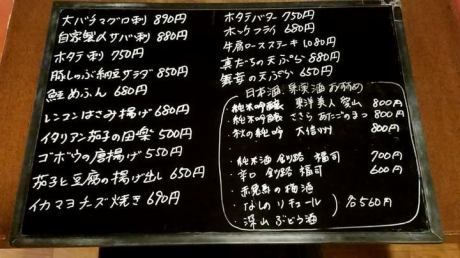 大バチマグロ刺 890円
自家製〆サバ刺 880円
ホタテ刺 750円
豚しゃぶ納豆サラダ 850円
鮭めふん 680円
レンコンはさみ揚げ 680円
イタリアン茄子の田楽 500円
ゴボウの唐揚げ 550円
茄子と豆腐の揚げ出し 650円
イカマヨチーズ焼き 690円
ホタテバター 750円
ホッケフライ 680円
牛肩ロースステーキ 1080円
真だちの天ぷら 880円
舞茸の天ぷら 650円
日本酒、果実酒お勧め
・純米吟醸 東洋美人 800円
・純米吟醸 ささら あたごのまつ 800円
・秋の純吟 大信州 800円
・純米酒 釧路 福司 700円
・辛口 釧路 福司 600円
の梅酒
・なしのリキュール 各560円
・深山ぶどう酒